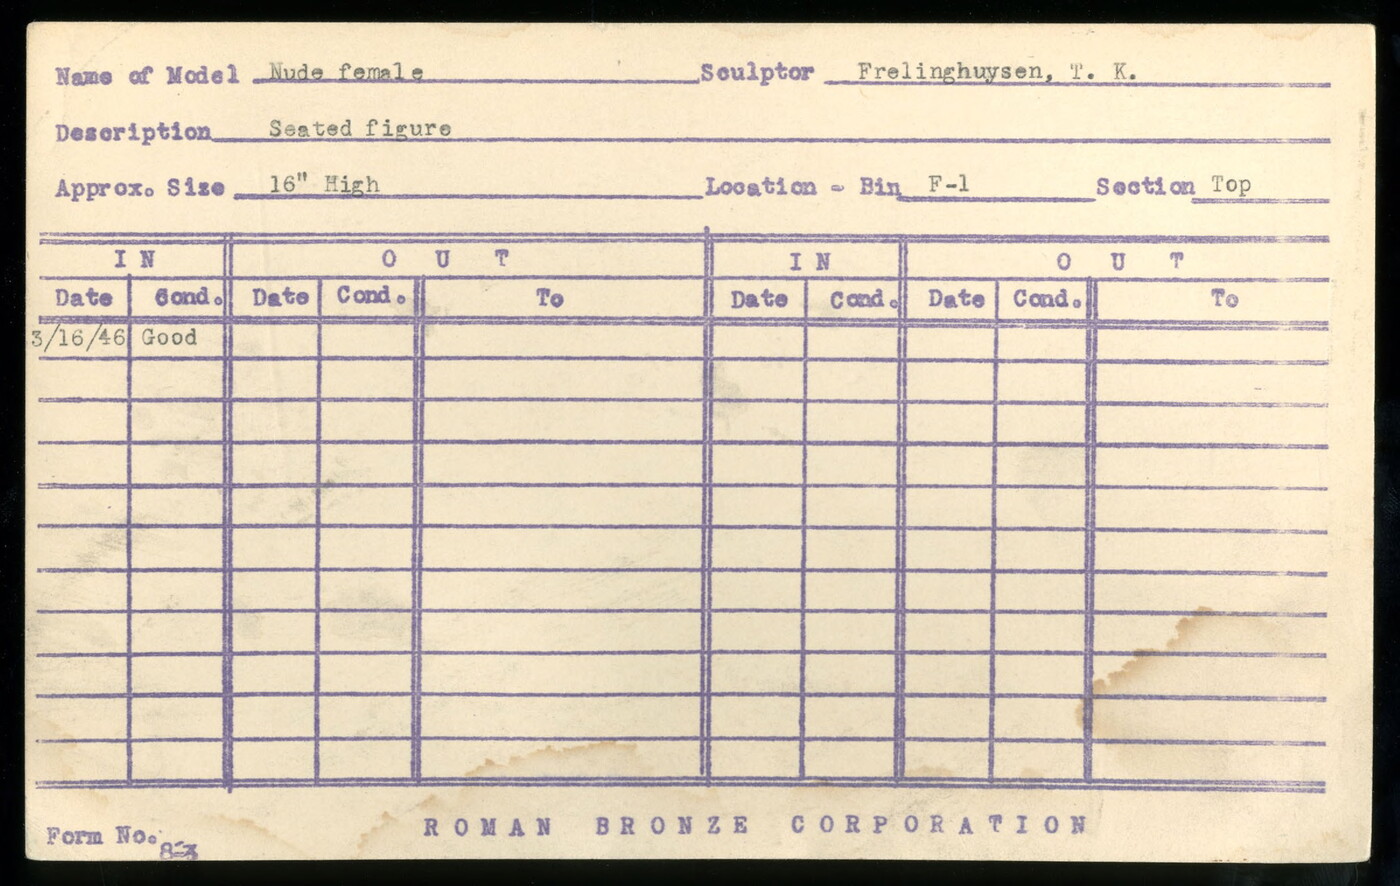 Name of Model Nude female Sculptor Frelinghuysen, T. K.
Description Seated figure
Approx. Size 16" High Location - Bin F-1 Section Top
IN OUT IN OUT
Date Cond. Date Cond. To Date Cond. Date Cond. To
3/16/46 Good
Form No. 8-3 ROMAN BRONZE CORPORATION